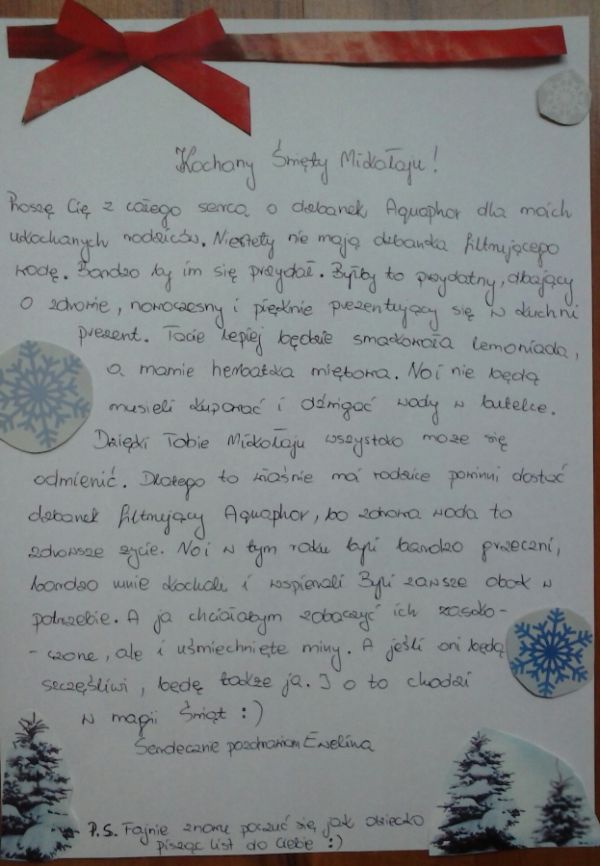 Kochany Święty Mikołaju!
Proszę Cię z całego serca o dzbanek Aquaphor dla moich
ukochanych rodziców. Niestety nie mają dzbanka filtrującego
wodę. Bardzo by im się przydał. Byłby to przydatny, dbający
o zdrowie, nowoczesny i pięknie prezentujący się w kuchni
prezent. Tacie lepiej będzie smakowała lemoniada,
a mamie herbatka miętowa. No i nie będą
musieli kupować i dźwigać wody w butelce.
Dzięki Tobie Mikołaju wszystko może się
odmienić. Dlatego to właśnie moi rodzice powinni dostać
dzbanek filtrujący Aquaphor, bo zdrowa woda to
zdrowsze życie. No i w tym roku byli bardzo grzeczni,
bardzo mnie kochali i wspierali Byli zawsze obok w
potrzebie. A ja chciałabym zobaczyć ich zasko-
-czone, ale i uśmiechnięte miny. A jeśli oni będą
szczęśliwi, będę także ja. I o to chodzi
w magii Świąt :)
Serdecznie pozdrawiam Ewelina
P.S. Fajnie znowu poczuć się jak dziecko
pisząc list do Ciebie :)